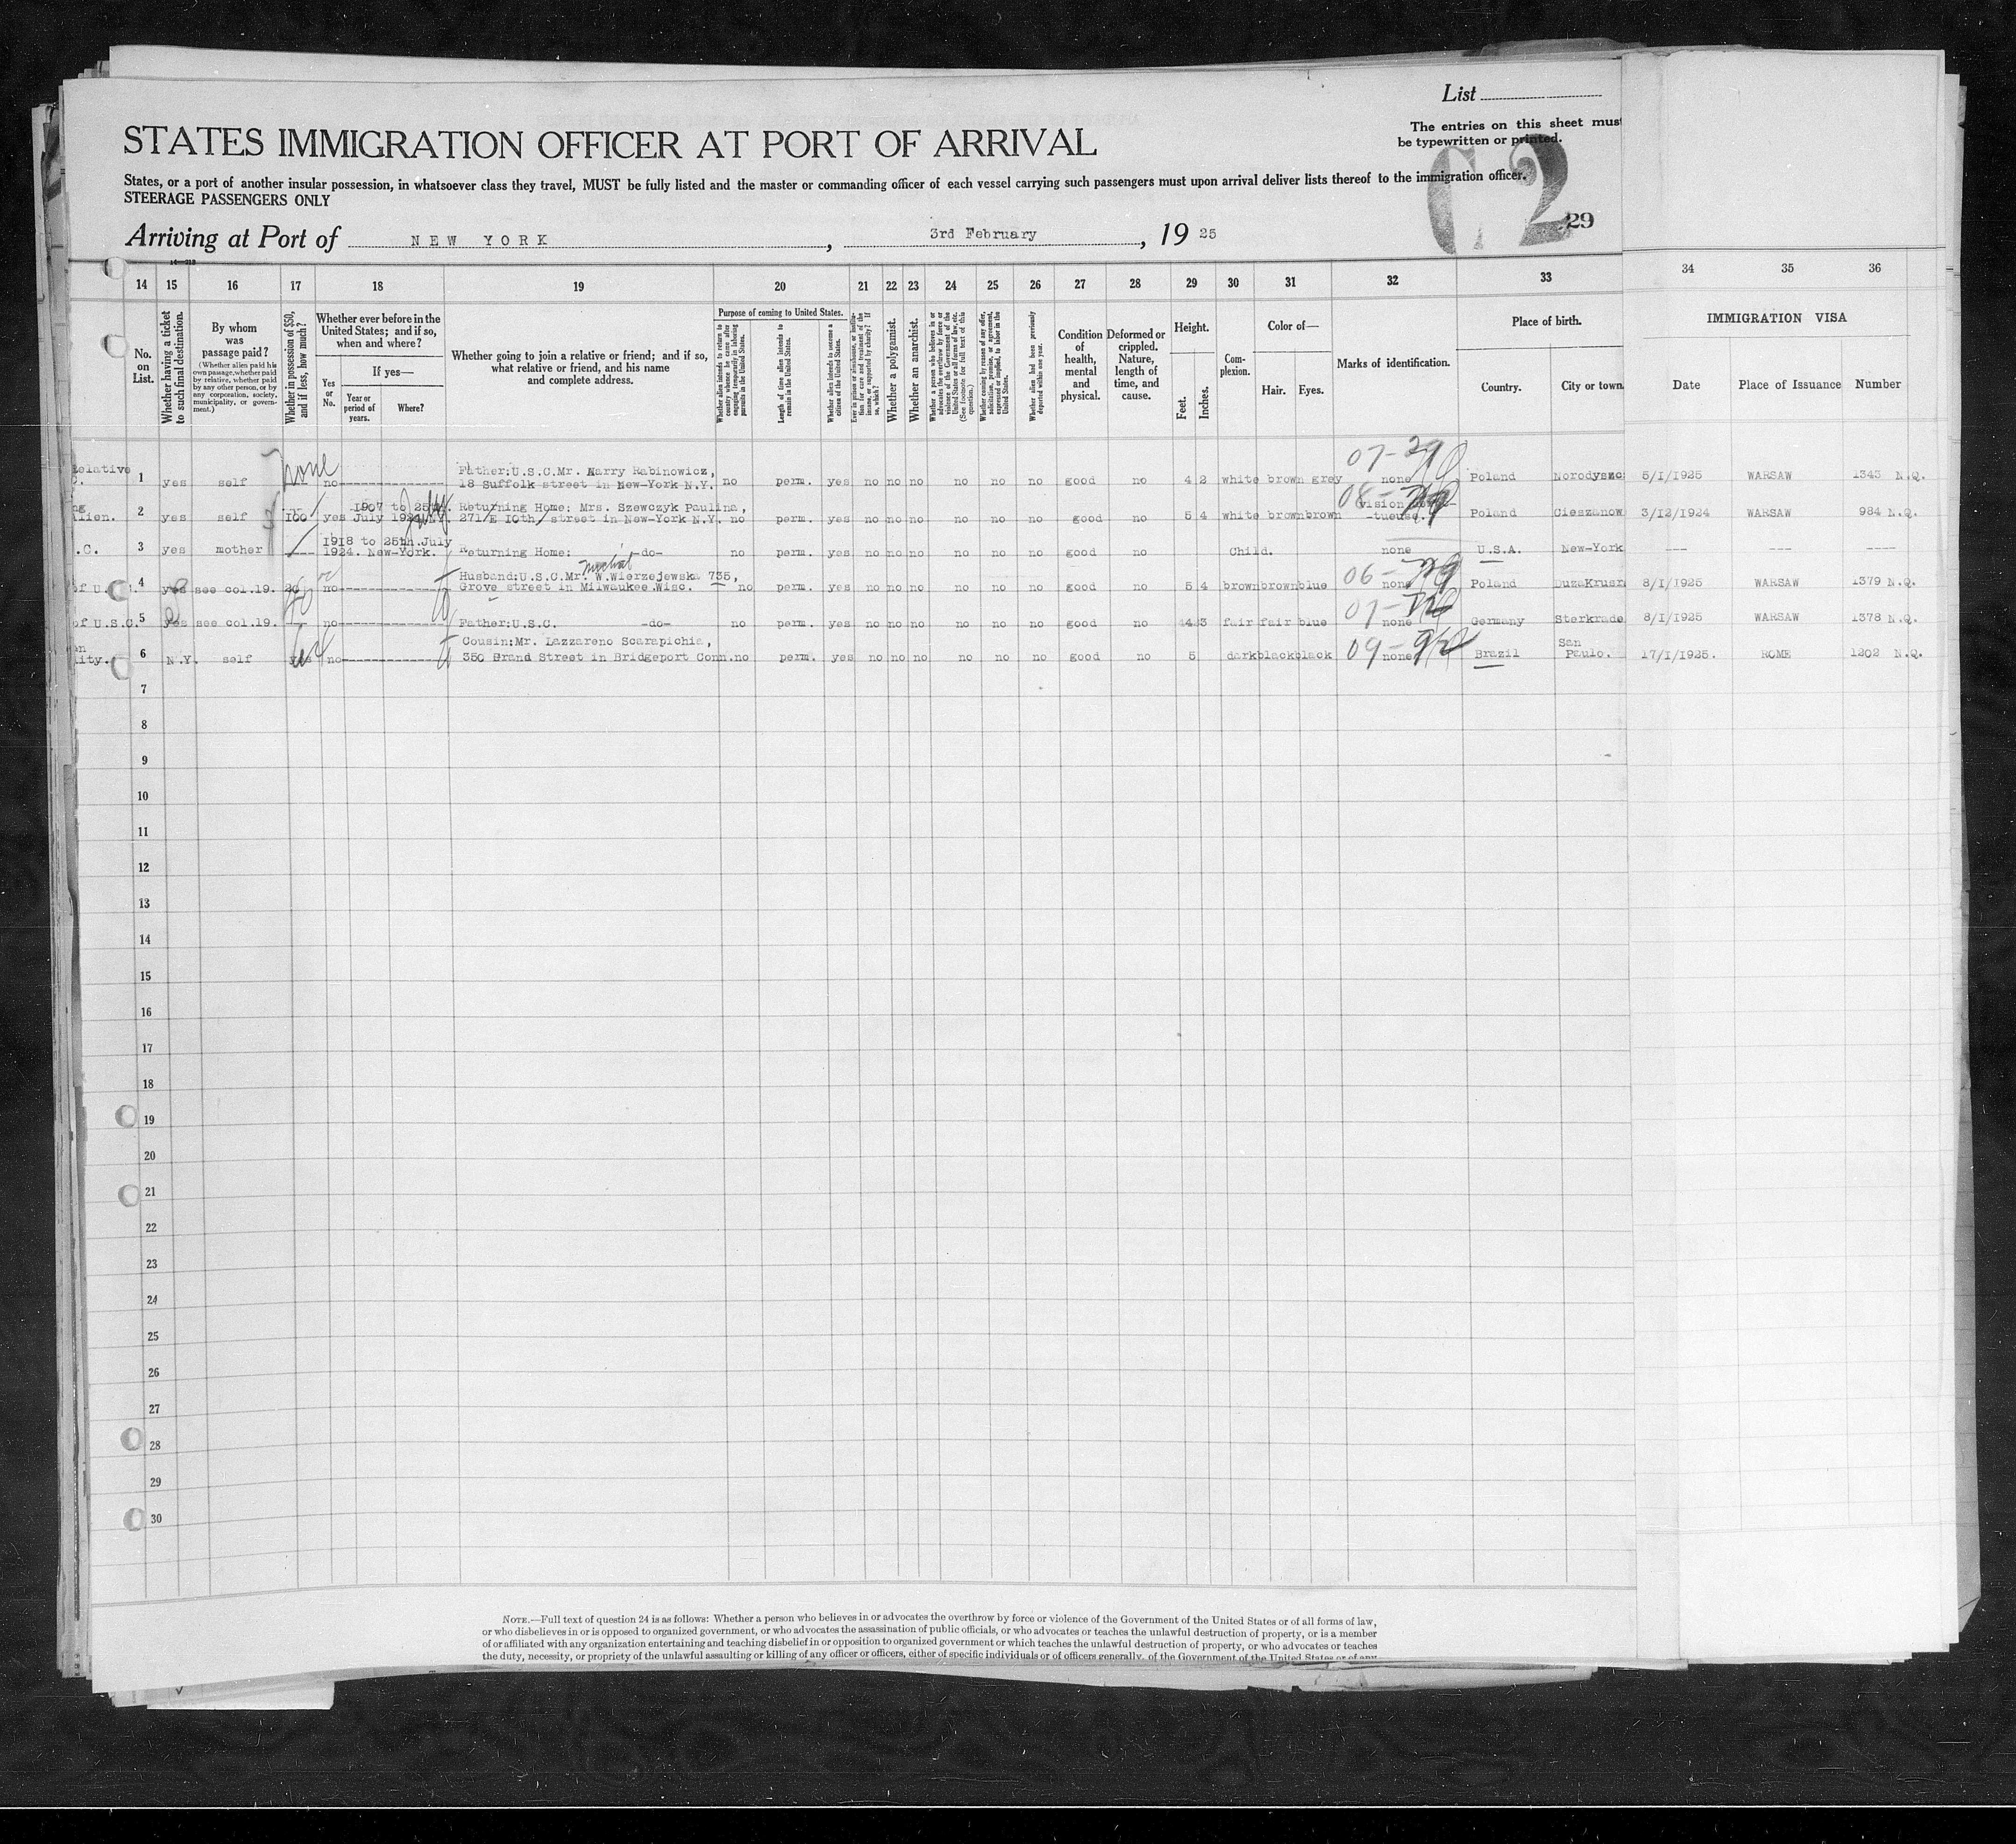 List
The entries on this sheet must
be typewritten or printed.
STATES IMMIGRATION OFFICER AT PORT OF ARRIVAL
States, or a port of another insular possession, in whatsoever class they travel, MUST be fully listed and the master or commanding officer of each vessel carrying such passengers must upon arrival deliver lists thereof to the immigration officer.
STEERAGE PASSENGERS ONLY
62
29
Arriving at Port of NEW YORK, 3rd February, 1925
14 15 16 17 18 19 20 21 22 23 24 25 26 27 28 29 30 31 32 33 34 35 36
No. on List.
Whether having a ticket to such final destination.
By whom was passage paid?
(Whether alien paid his own passage, whether paid by relative, whether paid by any other person, or by any corporation, society, municipality, or government.)
Whether in possession of $50, and if less, how much?
Whether ever before in the United States; and if so, when and where?
Yes or No.
If yes—
Year or period of years.
Where?
Whether going to join a relative or friend; and if so, what relative or friend, and his name and complete address.
Purpose of coming to United States.
Whether alien intends to return to country whence he came after engaging temporarily in laboring pursuits in the United States.
Length of time alien intends to remain in the United States.
Whether alien intends to become a citizen of the United States.
Ever in prison or almshouse, or institution for care and treatment of the insane, or supported by charity? If so, which?
Whether a polygamist.
Whether an anarchist.
Whether a person who believes in or advocates the overthrow by force or violence of the Government of the United States or all forms of law, etc. (See footnote for full text of this question.)
Whether coming by reason of any offer, solicitation, promise, or agreement, expressed or implied, to labor in the United States.
Whether alien had been previously deported within one year.
Condition of health, mental and physical.
Deformed or crippled. Nature, length of time, and cause.
Height.
Feet. Inches.
Complexion.
Color of—
Hair. Eyes.
Marks of identification.
Place of birth.
Country. City or town.
IMMIGRATION VISA
Date Place of Issuance Number
Relative
1 yes self none no Father:U.S.C.Mr. Harry Rabinowicz,
18 Suffolk street in New-York N.Y. no perm. yes no no no no no no good no 4 2 white brown grey none Poland 5/I/1925 WARSAW 1343 N.Q.
07-
2 yes self 100 yes 1907 to 25th.
July 1924 Returning Home: Mrs. Szewczyk Paulina,
271/E 10th/street in New-York N.Y. no perm. yes no no no no no no good no 5 4 white brown brown Poland Cieszanow 3/12/1924 WARSAW 984 N.Q.
08-
3 yes mother 1918 to 25th.July
1924. New-York. Returning Home: -do- no perm. yes no no no no no no good no Child. none U.S.A. New-York --- --- ----
4 yes see col.19. no Husband:U.S.C.Mr. W.Wierzejewska 735,
Grove street in Milwaukee.Wisc. no perm. yes no no no no no no good no 5 4 brown brown blue none Poland 8/I/1925 WARSAW 1379 N.Q.
06-
of U.S.C. 5 yes see col.19. no Father:U.S.C. -do- no perm. yes no no no no no no good no 4 3 fair fair blue none Germany Sterkrade 8/I/1925 WARSAW 1378 N.Q.
07-
6 N.Y. self yes no Cousin:Mr. Lazzareno Scarapichia,
350 Grand Street in Bridgeport Conn. no perm. yes no no no no no no good no 5 dark black black none Brazil San
Paulo. 17/I/1925. ROME 1202 N.Q.
09-
7
8
9
10
11
12
13
14
15
16
17
18
19
20
21
22
23
24
25
26
27
28
29
30
NOTE.—Full text of question 24 is as follows: Whether a person who believes in or advocates the overthrow by force or violence of the Government of the United States or of all forms of law,
or who disbelieves in or is opposed to organized government, or who advocates the assassination of public officials, or who advocates or teaches the unlawful destruction of property, or is a member
of or affiliated with any organization entertaining and teaching disbelief in or opposition to organized government or which teaches the unlawful destruction of property, or who advocates or teaches
the duty, necessity, or propriety of the unlawful assaulting or killing of any officer or officers, either of specific individuals or of officers generally, of the Government of the United States or of any